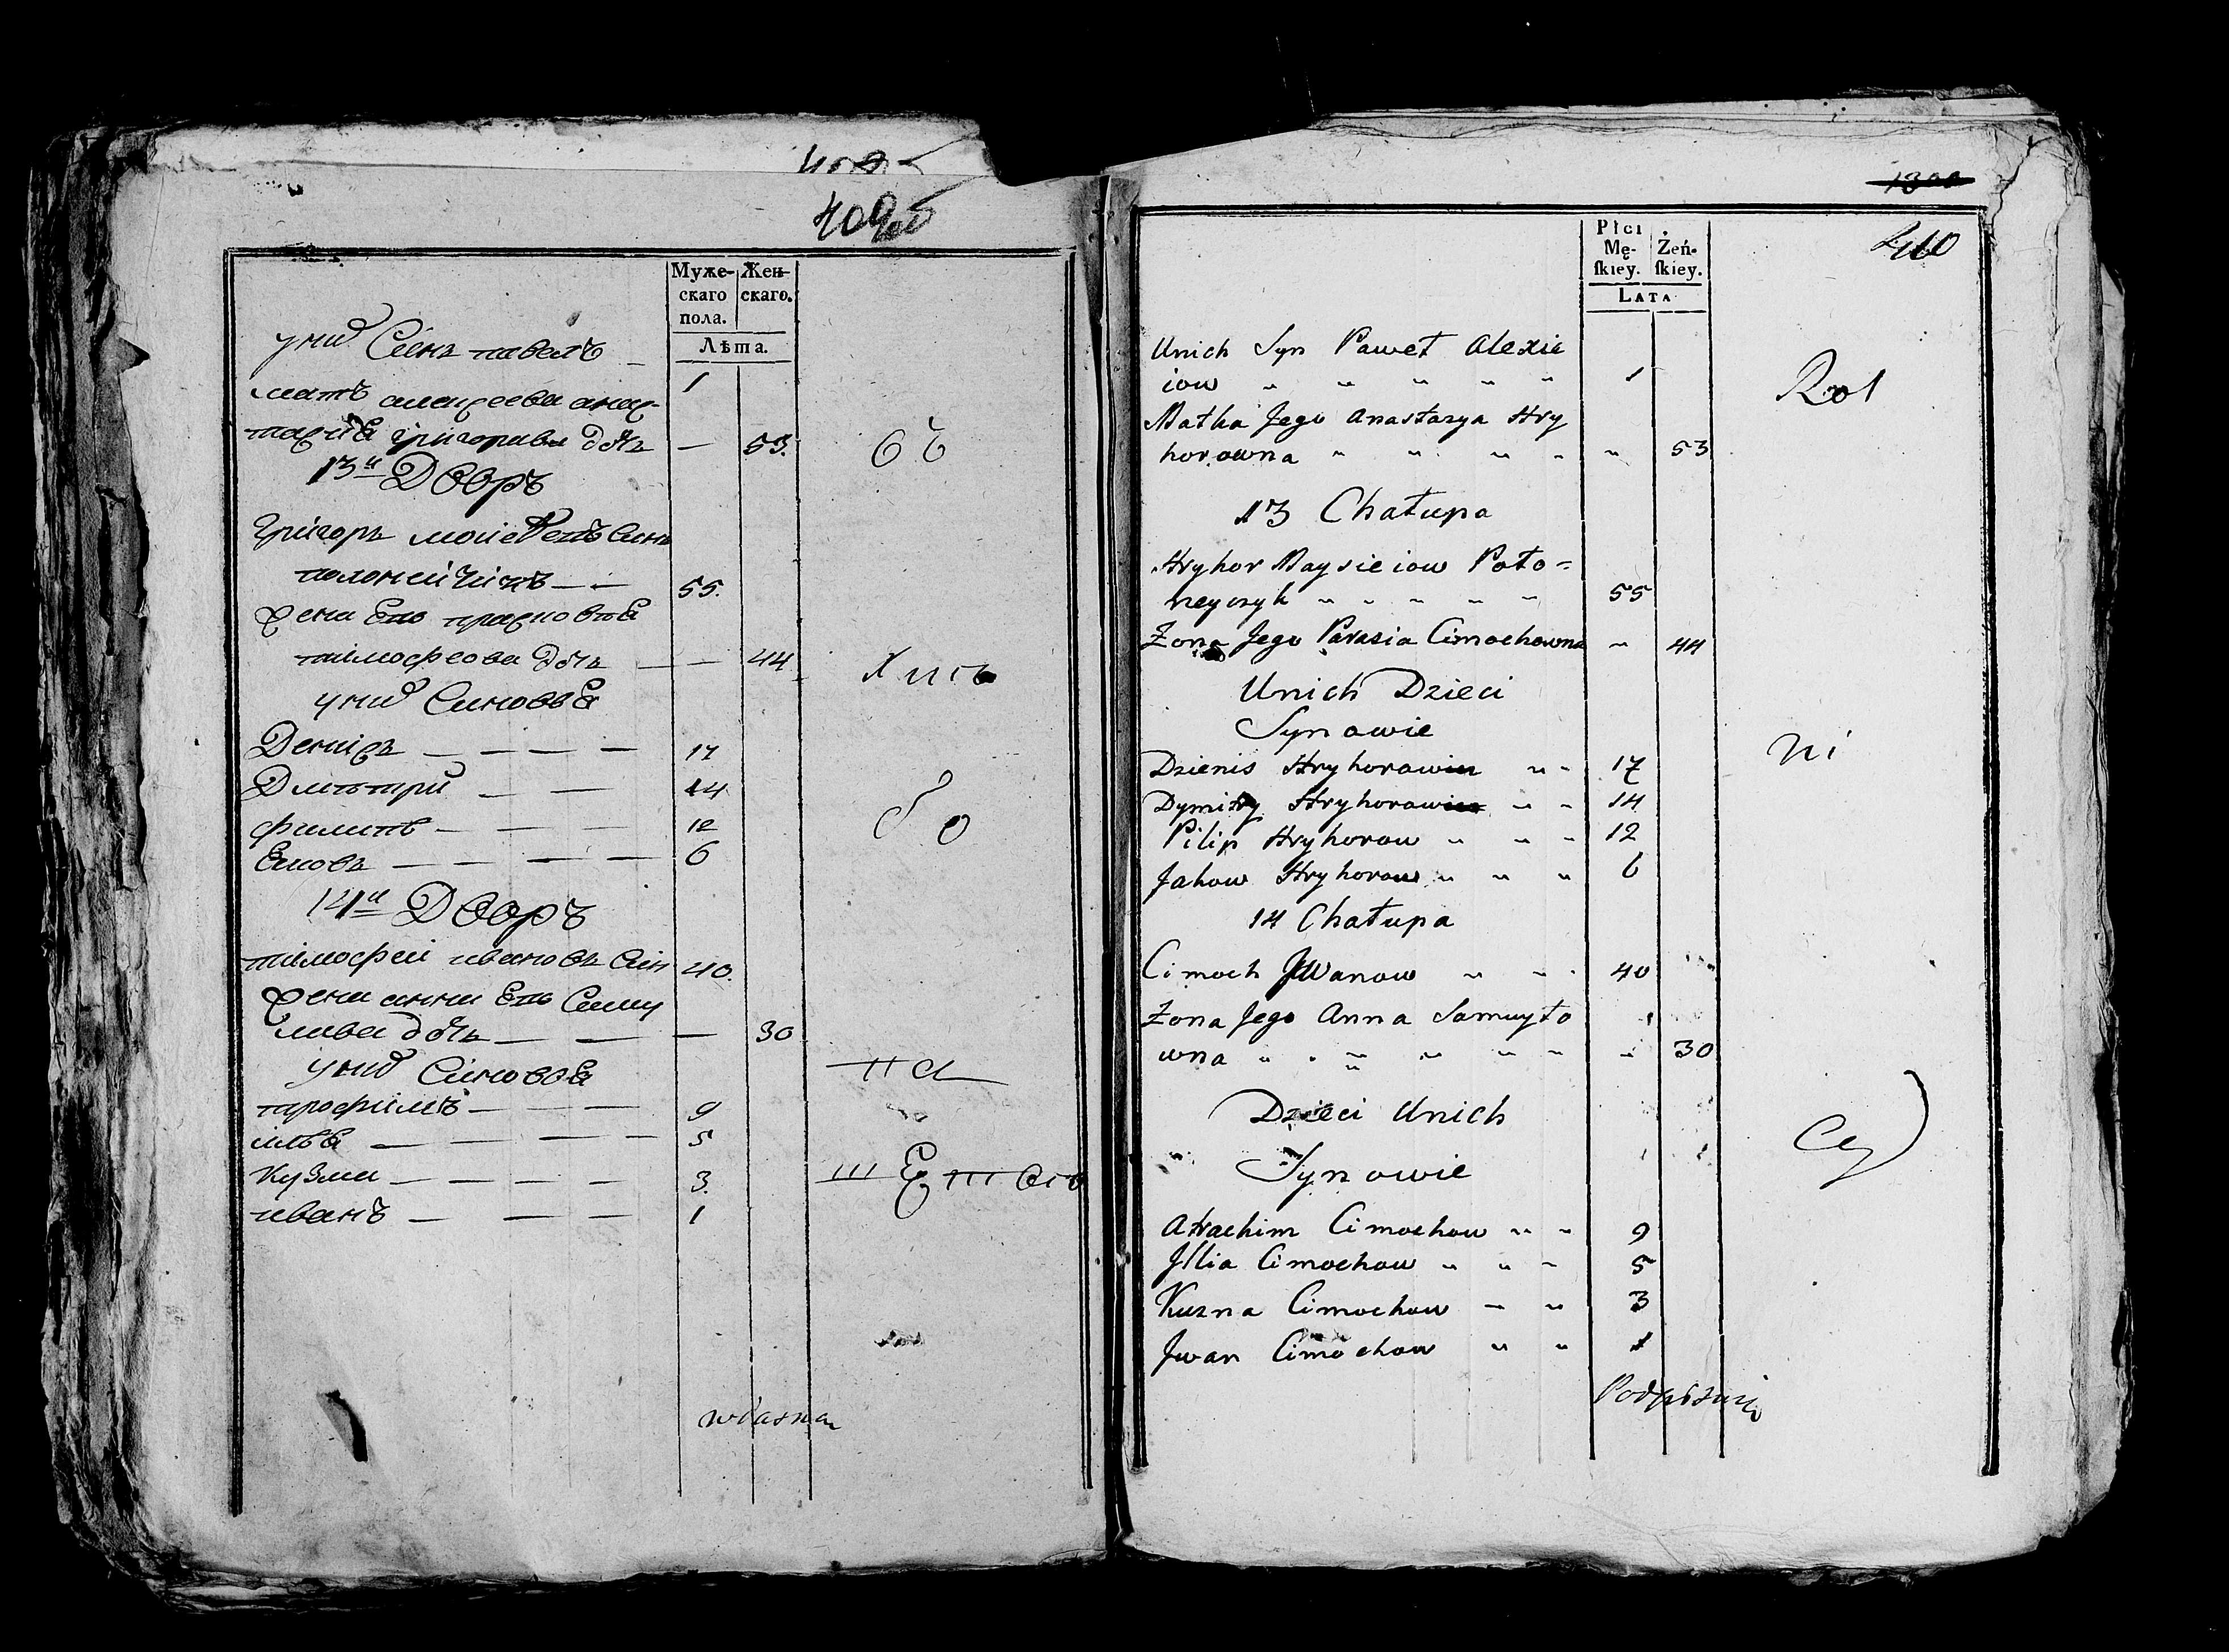 409об
Муже- Жен-
скаго скаго.
пола.
Лѣта.
у них Син павелъ
1
мать алексеева анас-
тасия григорива доч — 53.
бъ
13й Дворъ
григоръ моисеевъ син
полонейчикъ — — 55.
жена его прасковья
тимофеова доч — — 44
жит
у них Синовья
Денисъ — — — — 17
Дмитрий — — 14
филипъ — — — 12
бо
Яковъ — — — — 6
14й Дворъ
тимофей ивановъ син 40.
жена анна его саму
илава доч — — — 30
на
у них Синовья
трофимъ — — — 9
илья — — — — 5
кузма — — — — 3.
иванъ — — — 1
własna
1300
410
Płci
Mę- Żeń-
ſkiey. ſkiey.
LATA
Unich Syn Paweł Alexie
iow " " " " " 1
Rol
Matka Jego Anastazya Hry
horowna " " " " " 53
13 Chałupa
Hryhor Maysieiow Poło=
neyczyk " " " " " 55
Żona Jego Parasia Cimochowna " 44
Unich Dzieci
Synowie
ni
Dzienis Hryhorow " " 17
Dymitry Hryhorow " " 14
Pilip Hryhorow " " " 12
Jakow Hryhorow " " " 6
14 Chałupa
Cimoch Jwanow " " " 40
Żona Jego Anna Samuyło
wna " " " " " " " 30
Dzieci Unich
Synowie
Atrachim Cimochow " " 9
Jllia Cimochow " " " 5
Kuzna Cimochow " " 3
Jwan Cimochow " " 1